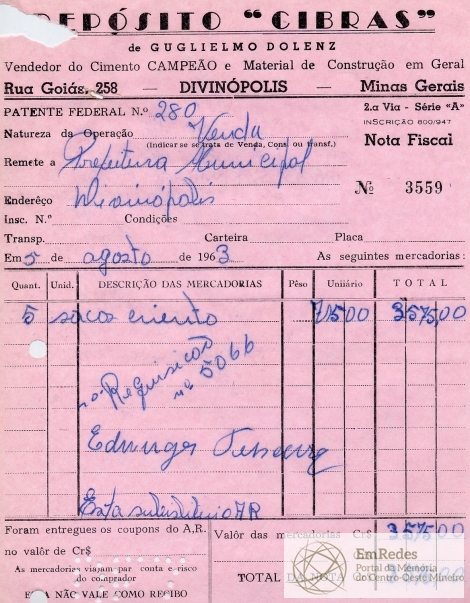 DEPÓSITO "CIBRAS"
de GUGLIELMO DOLENZ
Vendedor do Cimento CAMPEÃO e Material de Construção em Geral
Rua Goiás, 258 — DIVINÓPOLIS — Minas Gerais
PATENTE FEDERAL N.º 280
2.a Via - Série "A"
INSCRIÇÃO 600/947
Natureza da Operação Venda
(Indicar se se trata de Venda, Cons. ou transf.)
Nota Fiscal
Remete a Prefeitura Municipal
Nº 3559
Enderêço Divinópolis
Insc. N.º Condições
Transp. Carteira Placa
Em 5 de agosto de 1963 As seguintes mercadorias:
Quant. Unid. DESCRIÇÃO DAS MERCADORIAS Pêso Unitário TOTAL
5 sacos 71500 3575,00
Requisição
nº 5066
Foram entregues os coupons do A.R.
no valôr de Cr$
Valor das mercadorias Cr$ 3575,00
As mercadorias viajam por conta e risco
do comprador
TOTAL DA NOTA
ESTA NÃO VALE COMO RECIBO
EmRedes
Portal da Memória
do Centro-Oeste Mineiro